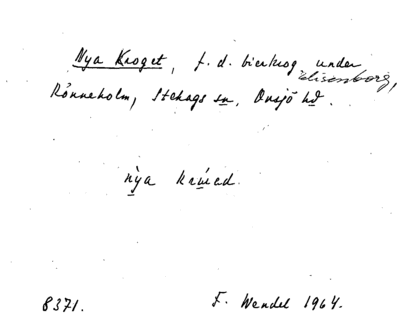 Nya Kroget, f. d. bierkrog under Elisenborg,
Rönneholm, Stehags sn, Onsjö hd.
nỳa krúəd.
8371. F. Wendel 1964.